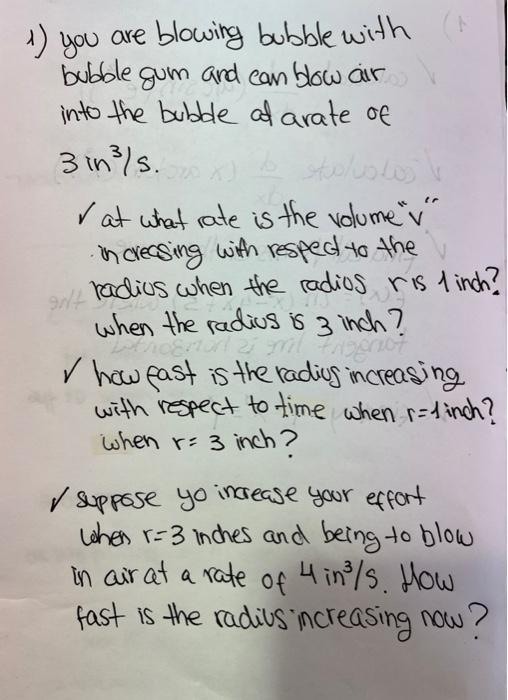 1) you are blowing bubble with
bubble gum and can blow air
into the bubble at a rate of
3 in³/s.
✓ at what rate is the volume "v"
increasing with respect to the
radius when the radios r is 1 inch?
when the radius is 3 inch?
✓ how fast is the radius increasing
with respect to time when r=1 inch?
when r= 3 inch?
✓ suppose yo increase your effort
when r=3 inches and being to blow
in air at a rate of 4 in³/s. How
fast is the radius increasing now?